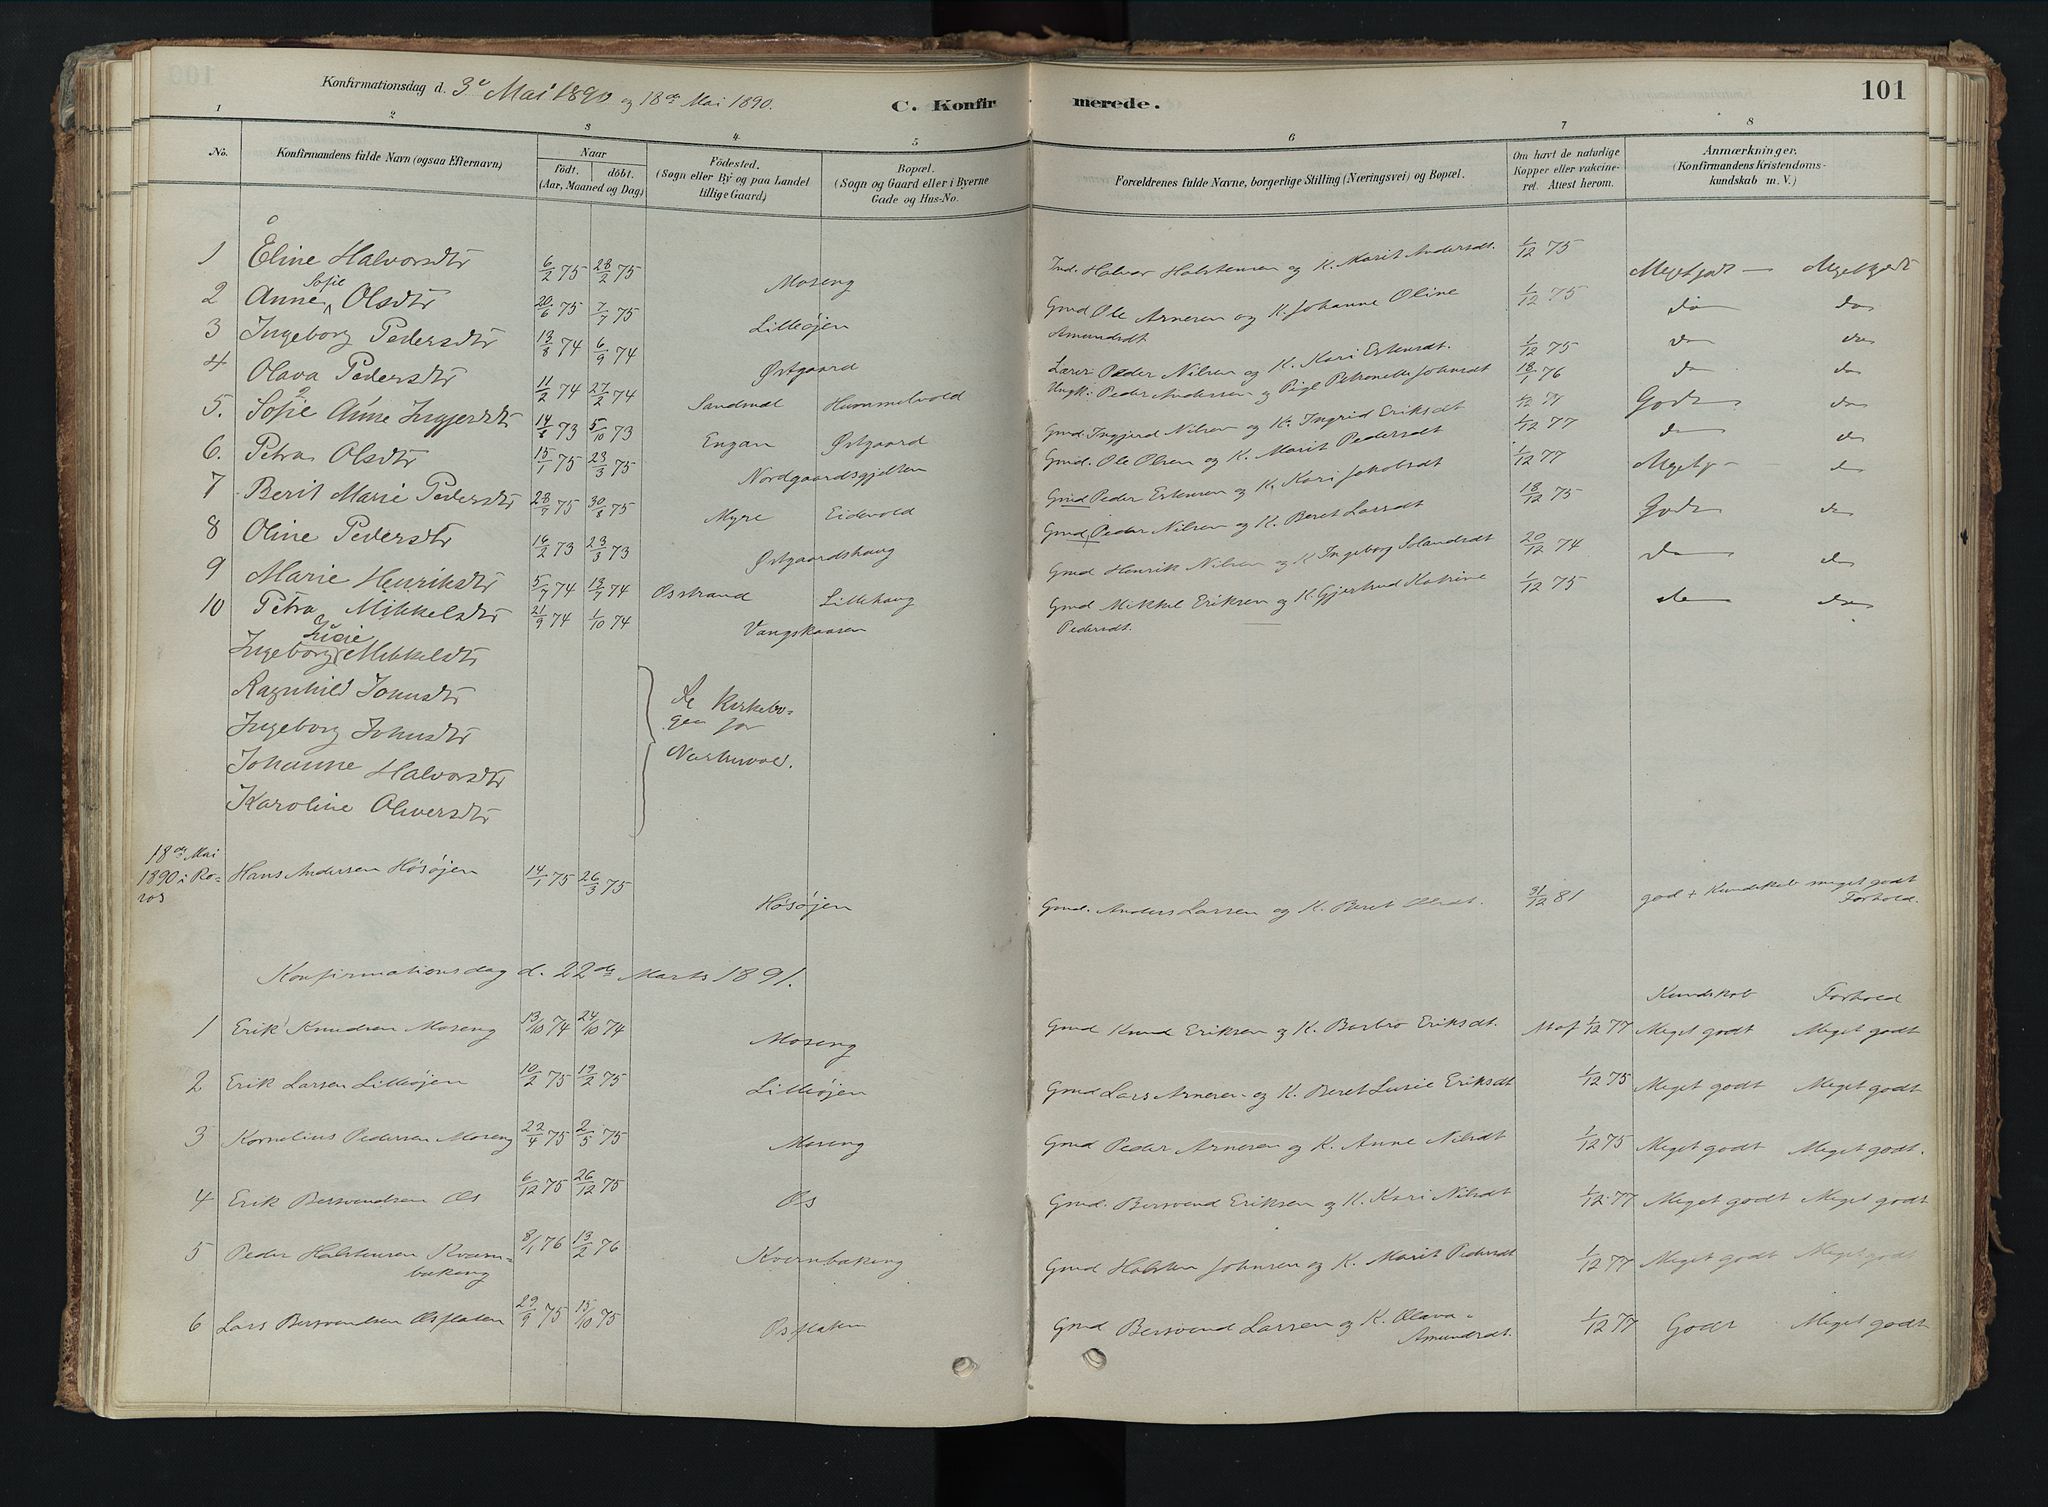 101
Konfirmationsdag d. 3e Mai 1890 og 18de Mai 1890.
C. Konfirmerede.
1 2 3 4 5 6 7 8
No. Konfirmandens fulde Navn (ogsaa Efternavn) Naar født. døbt. (Aar, Maaned og Dag) Fødested. (Sogn eller By og paa Landet tillige Gaard) Bopæl. (Sogn og Gaard eller i Byerne Gade og Hus-No. Forældrenes fulde Navne, borgerlige Stilling (Næringsvei) og Bopæl. Om havt de naturlige Kopper eller vakcineret. Attest herom. Anmærkninger. (Konfirmandens Kristendomskundskab m. V.)
1 Eline Halvorsdtr 6/2 75 28/2 75 Moseng Ind. Halvor Halstensen og K. Marit Andersdt. 1/12 75 Megetgodt Megetgodt
2 Anne Sofie Olsdtr 20/6 75 7/7 75 Lilleøjen Gmd Ole Arnesen og K. Johanne Oline Amundsdt 1/12 75 do do
3 Ingeborg Pedersdtr 13/8 74 6/9 74 Østgaard Lærer Peder Nilsen og K. Kari Estensdt. 1/12 75 do do
4 Olava Pedersdtr 11/2 74 27/2 74 Sandmæl Hummelvold Ungk. Peder Andersen og Pige Petronelle Johnsdt 18/1 76 do do
5. Sofie Anne Ingjersdtr 14/8 73 5/10 73 Engan Østgaard Gmd. Ingjerd Nilsen og K. Ingrid Eriksdt Godt do
6. Petra Olsdtr 15/1 75 23/3 75 Nordgaardsgjelten Gmd. Ole Olsen og K. Marit Pedersdt 1/12 77 do do
7 Berit Marie Pedersdtr 28/7 75 30/8 75 Myre Eidsvold Gmd Peder Estensen og K. Kari Jakobsdt 1/12 77 Megetg do
8 Oline Pedersdtr 16/2 73 23/3 73 Østgaardshaug Gmd Peder Nilsen og K. Beret Larsdt 18/12 75 Godt do
9 Marie Henriksdtr 5/7 74 19/7 74 Osstrand Lillehaug Gmd Henrik Nilsen og K Ingeborg 20/12 74 do do
10 Petra Mikkelsdtr 21/9 74 1/10 74 Vangskaasen Gmd Mikkel Eriksen og K. Gjertrud Katrine Pedersdt. 1/12 75 do do
Ingeborg Lucie Mikkelsdtr
Ragnhild Johnsdtr
Ingeborg Johnsdtr
Johanne Halvorsdtr
Karoline Oliversdtr
Se Kirkebogen for Narbuvold.
18de Mai 1890 i Roros Hans Andersen Høsøjen 14/1 75 26/3 75 Høsøjen Gmd. Anders Larsen og K. Beret Olsdt. 31/12 81 god + Kundskab meget godt Forhold.
Konfirmationsdag d. 22de Marts 1891.
Kundskab Forhold
1 Erik Knudsen Moseng 13/10 74 24/10 74 Moseng Gmd Knud Eriksen og K. Barbro Eriksdt. Att af 1/12 77 Meget godt Meget godt
2 Erik Larsen Lilleøjen 10/2 75 19/2 75 Lilleøjen Gmd Lars Arnesen og K. Beret Lusie Eriksdt 1/12 75 Meget godt Meget godt
3 Kornelius Pedersen Moseng 22/4 75 2/5 75 Moseng Gmd Peder Arnesen og K. Anne Nilsdt 1/12 75 Meget godt Meget godt.
4 Erik Bersvendsen Os 6/12 75 26/12 75 Os Gmd. Bersvend Eriksen og K. Kari Nilsdt 1/12 77 Meget godt Meget godt
5 Peder Halstensen Kvernbakeng 8/1 76 13/2 76 Kvernbakeng Gmd Halsten Johnsen og K. Marit Pedersdt 1/12 77 Meget godt Meget godt
6 Lars Bersvendsen Osflaten 29/9 75 15/10 75 Osflaten Gmd Bersvend Larsen og K. Olava Amundsdt. 1/12 77 Godt Meget godt